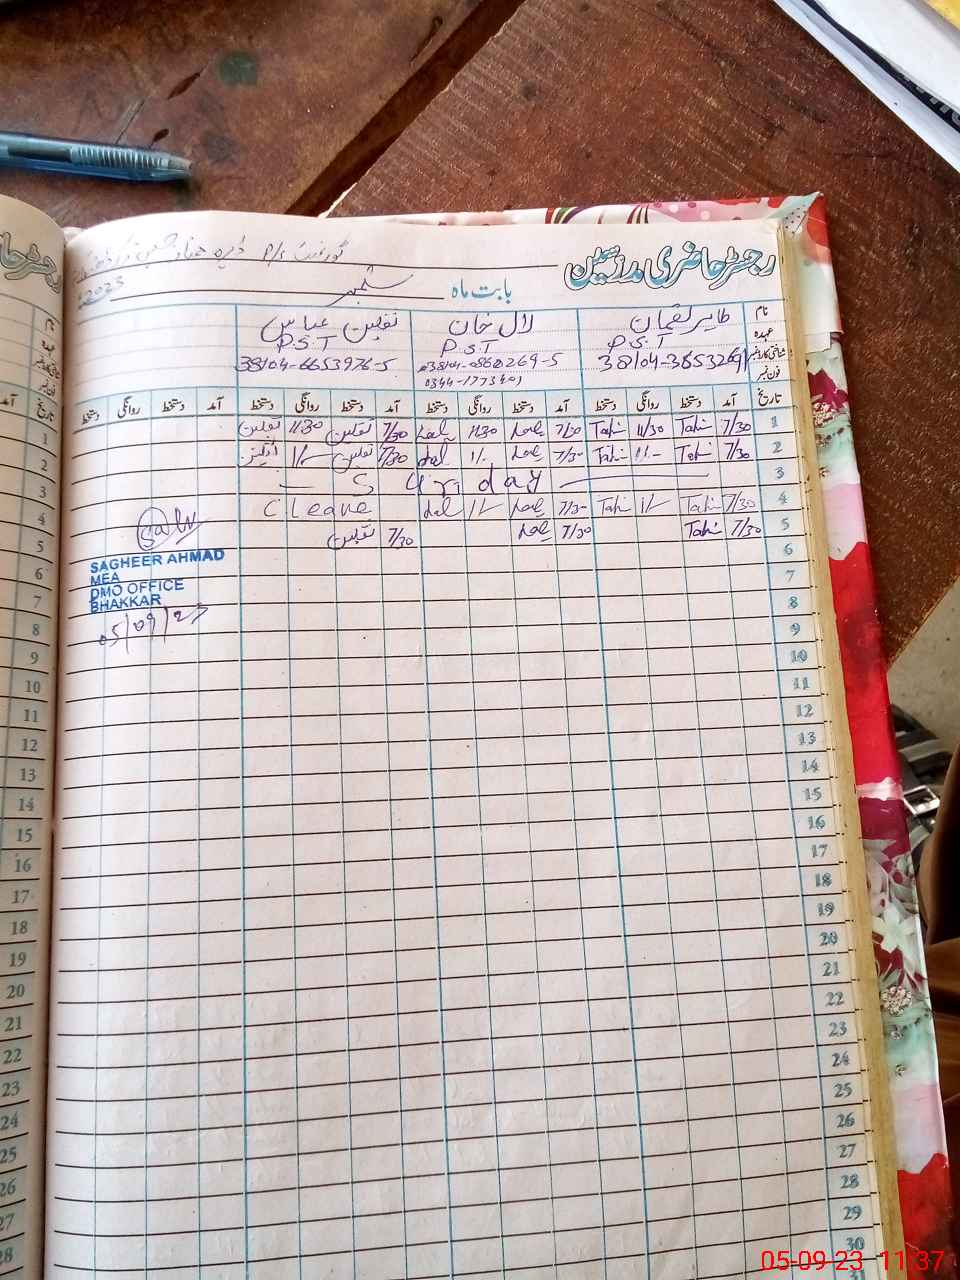 رجسٹر حاضری مدرسین
گورنمنٹ P/S ڈیرہ
بابت ماہ ستمبر 2023
نام طاہر لقمان لال خان ثقلین عباس
عہدہ P.S.T P.S.T P.S.T
شناختی کارڈ نمبر 38104-3653269 38104-0860269-5 38104-6653976-5
فون نمبر 0344-1773401
تاریخ آمد دستخط روانگی دستخط آمد دستخط روانگی دستخط آمد دستخط روانگی دستخط آمد دستخط روانگی دستخط
1 7/30 Tahir 11/30 Tahir 7/30 Lal 11/30 Lal 7/30 ثقلین 11/30 ثقلین
2 7/30 Tahir 1/- Tahir 7/30 Lal 1/- Lal 7/30 ثقلین 1/-
3 Sunday
4 7/30 Tahir 1/- Tahir 7/30 Lal 1/- Lal C leave
5 7/30 Tahir 7/30 Lal 7/30 ثقلین
6
7
8
9
10
11
12
13
14
15
16
17
18
19
20
21
22
23
24
25
26
27
28
29
30
31
SAGHEER AHMAD
MEA
DMO OFFICE
BHAKKAR
05/09/23
نام
عہدہ
شناختی کارڈ نمبر
فون نمبر
تاریخ آمد
1
2
3
4
5
6
7
8
9
10
11
12
13
14
15
16
17
18
19
20
21
22
23
24
25
26
27
28
05-09-23 11:37